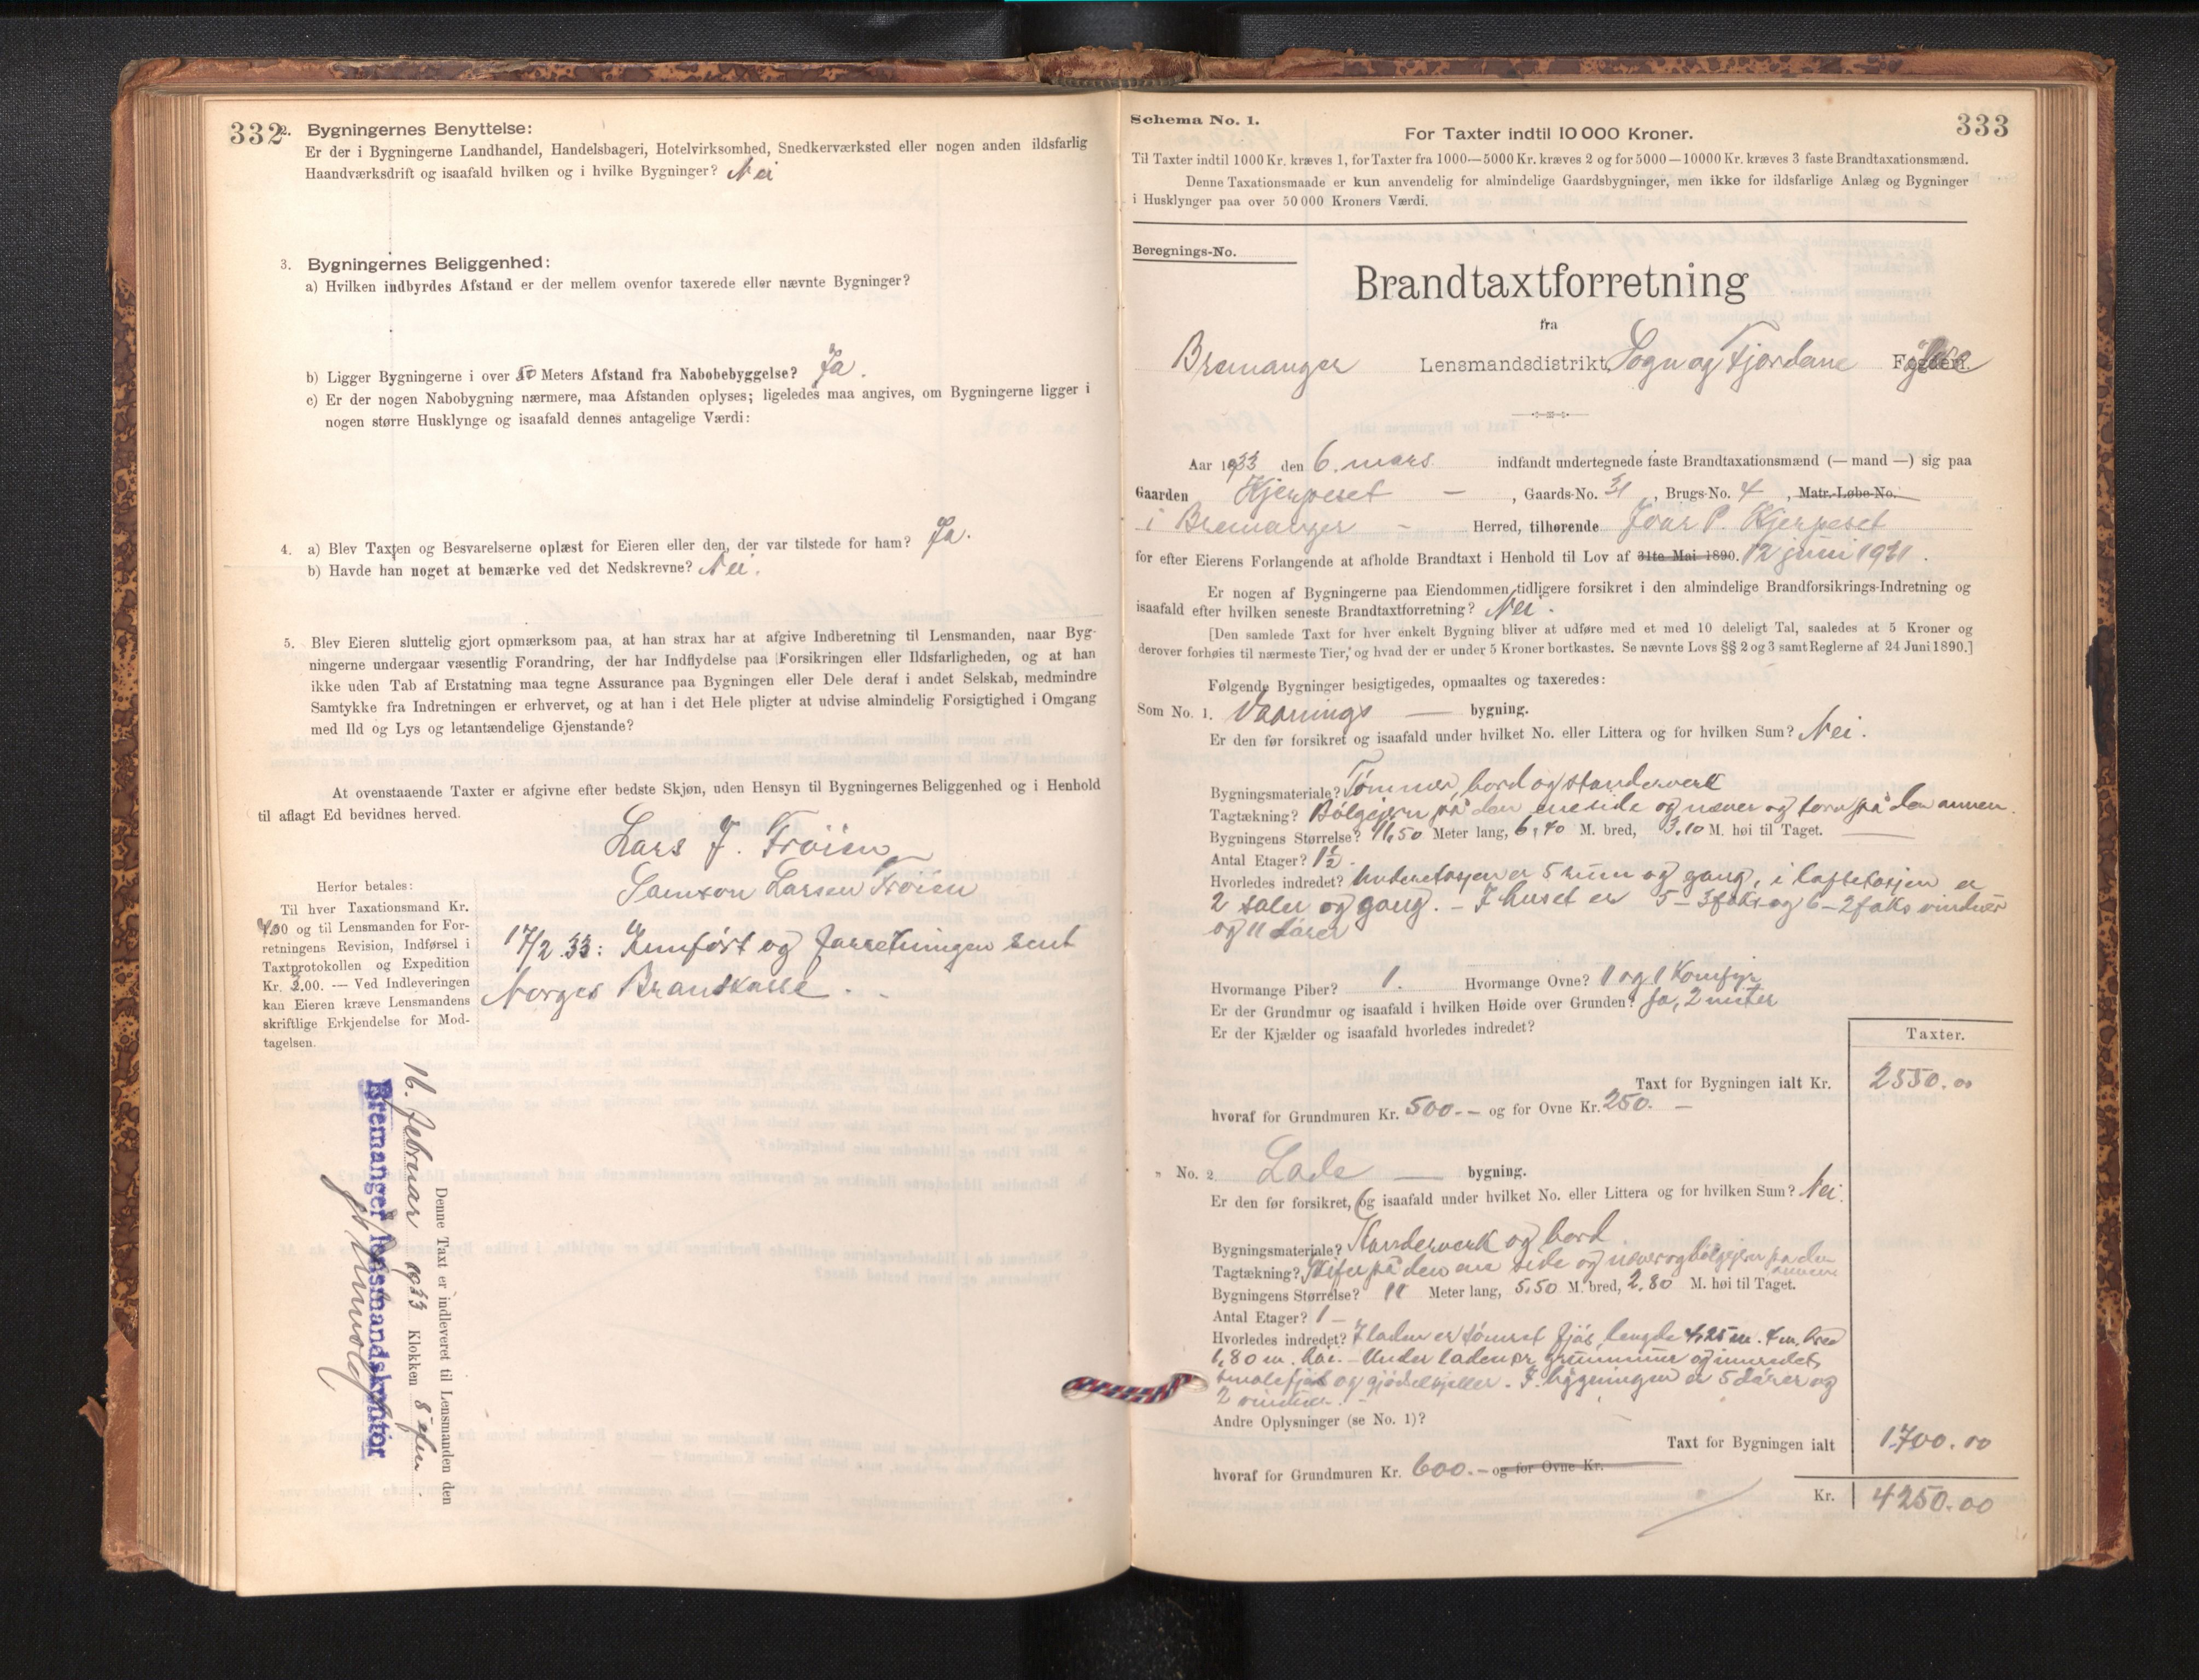 332
2. Bygningernes Benyttelse:
Er der i Bygningerne Landhandel, Handelsbageri, Hotelvirksomhed, Snedkerværksted eller nogen anden ildsfarlig
Haandværksdrift og isaafald hvilken og i hvilke Bygninger? Nei
3. Bygningernes Beliggenhed:
a) Hvilken indbyrdes Afstand er der mellem ovenfor taxerede eller nævnte Bygninger?
b) Ligger Bygningerne i over Meters Afstand fra Nabobebyggelse? Ja.
c) Er der nogen Nabobygning nærmere, maa Afstanden oplyses; ligeledes maa angives, om Bygningerne ligger i
nogen større Husklynge og isaafald dennes antagelige Værdi:
4. a) Blev Taxten og Besvarelserne oplæst for Eieren eller den, der var tilstede for ham? Ja.
b) Havde han noget at bemærke ved det Nedskrevne? Nei.
5. Blev Eieren sluttelig gjort opmærksom paa, at han strax har at afgive Indberetning til Lensmanden, naar Byg-
ningerne undergaar væsentlig Forandring, der har Indflydelse paa Forsikringen eller Ildsfarligheden, og at han
ikke uden Tab af Erstatning maa tegne Assurance paa Bygningen eller Dele deraf i andet Selskab, medmindre
Samtykke fra Indretningen er erhvervet, og at han i det Hele pligter at udvise almindelig Forsigtighed i Omgang
med Ild og Lys og letantændelige Gjenstande?
At ovenstaaende Taxter er afgivne efter bedste Skjøn, uden Hensyn til Bygningernes Beliggenhed og i Henhold
til aflagt Ed bevidnes herved.
Lars J. Fröien
Samson Larsen Fröien
Herfor betales:
Til hver Taxationsmand Kr.
4.00 og til Lensmanden for For-
retningens Revision, Indførsel i
Taxtprotokollen og Expedition
Kr. 2.00. — Ved Indleveringen
kan Eieren kræve Lensmandens
skriftlige Erkjendelse for Mod-
tagelsen.
17/2 33: Innfört og forretningen sent
Norges Brankasse.
Denne Taxt er indleveret til Lensmanden den
16. februar 1933 Klokken 8 efm.
Bremanger lensmandskontor
333
Schema No. 1.
For Taxter indtil 10 000 Kroner.
Til Taxter indtil 1000 Kr. kræves 1, for Taxter fra 1000—5000 Kr. kræves 2 og for 5000—10000 Kr. kræves 3 faste Brandtaxationsmænd.
Denne Taxationsmaade er kun anvendelig for almindelige Gaardsbygninger, men ikke for ildsfarlige Anlæg og Bygninger
i Husklynger paa over 50 000 Kroners Værdi.
Beregnings-No.
Brandtaxtforretning
fra
Bremanger Lensmandsdistrikt, Sogn og Fjordane
Aar 1933 den 6. mars indfandt undertegnede faste Brandtaxationsmænd (— mand —) sig paa
Gaarden Kjerpeset — , Gaards-No. 31, Brugs-No. 4, Matr.-Løbe-No.
i Bremanger - Herred, tilhørende Joar P. Kjerpeset
for efter Eierens Forlangende at afholde Brandtaxt i Henhold til Lov af 31te Mai 1890. 12 juni 1931.
Er nogen af Bygningerne paa Eiendommen tidligere forsikret i den almindelige Brandforsikrings-Indretning og
isaafald efter hvilken seneste Brandtaxtforretning? Nei.
[Den samlede Taxt for hver enkelt Bygning bliver at udføre med et med 10 deleligt Tal, saaledes at 5 Kroner og
derover forhøies til nærmeste Tier, og hvad der er under 5 Kroner bortkastes. Se nævnte Lovs §§ 2 og 3 samt Reglerne af 24 Juni 1890.]
Følgende Bygninger besigtigedes, opmaaltes og taxeredes:
Som No. 1. Vaanings — bygning.
Er den før forsikret og isaafald under hvilket No. eller Littera og for hvilken Sum? Nei.
Bygningsmateriale? Tömmer, bord og standerverk
Tagtækning? Bölgejern på den ene side og næver og torv på den annen.
Bygningens Størrelse? 11,50 Meter lang, 6,70 M. bred, 3.10 M. høi til Taget.
Antal Etager? 1½.
Hvorledes indredet? Underetasjen er 5 rum og gang, i loftetasjen er
2 saler og gang. - I huset er 5-3faks og 6-2faks vinduer
og 11 dører
Hvormange Piber? 1. Hvormange Ovne? 1 og 1 Komfyr
Er der Grundmur og isaafald i hvilken Høide over Grunden? Ja, 2 meter
Er der Kjælder og isaafald hvorledes indredet?
Taxter.
Taxt for Bygningen ialt Kr. 2550.00
hvoraf for Grundmuren Kr. 500.- og for Ovne Kr. 250.—
„ No. 2 Lade — bygning.
Er den før forsikret, og isaafald under hvilket No. eller Littera og for hvilken Sum? Nei.
Bygningsmateriale? Standerverk og bord
Tagtækning? Skifer på den ene side og never og bölgejern på den annen
Bygningens Størrelse? 11 Meter lang, 5,50 M. bred, 2.80 M. høi til Taget.
Antal Etager? 1 —
Hvorledes indredet? I laden er tömret fjös, lengde 4,25 m. 4 m. bred
1,80 m. höi. - Under laden er grunnmur og innredet
smalefjös og gjödselkjeller. I bygningen er 5 dörer og
2 vinduer. -
Andre Oplysninger (se No. 1)?
Taxt for Bygningen ialt 1700.00
hvoraf for Grundmuren Kr. 600.- og for Ovne Kr.
Kr. 4250.00